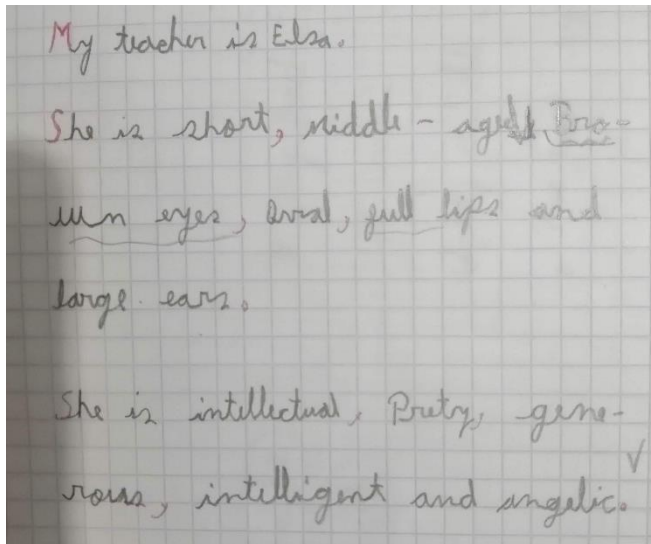 My teacher is Elsa.
She is short, middle - aged, Bro-
wn eyes, Oval, full lips and
large ears.
She is intellectual, Prety, gene-
rous, intelligent and angelic.